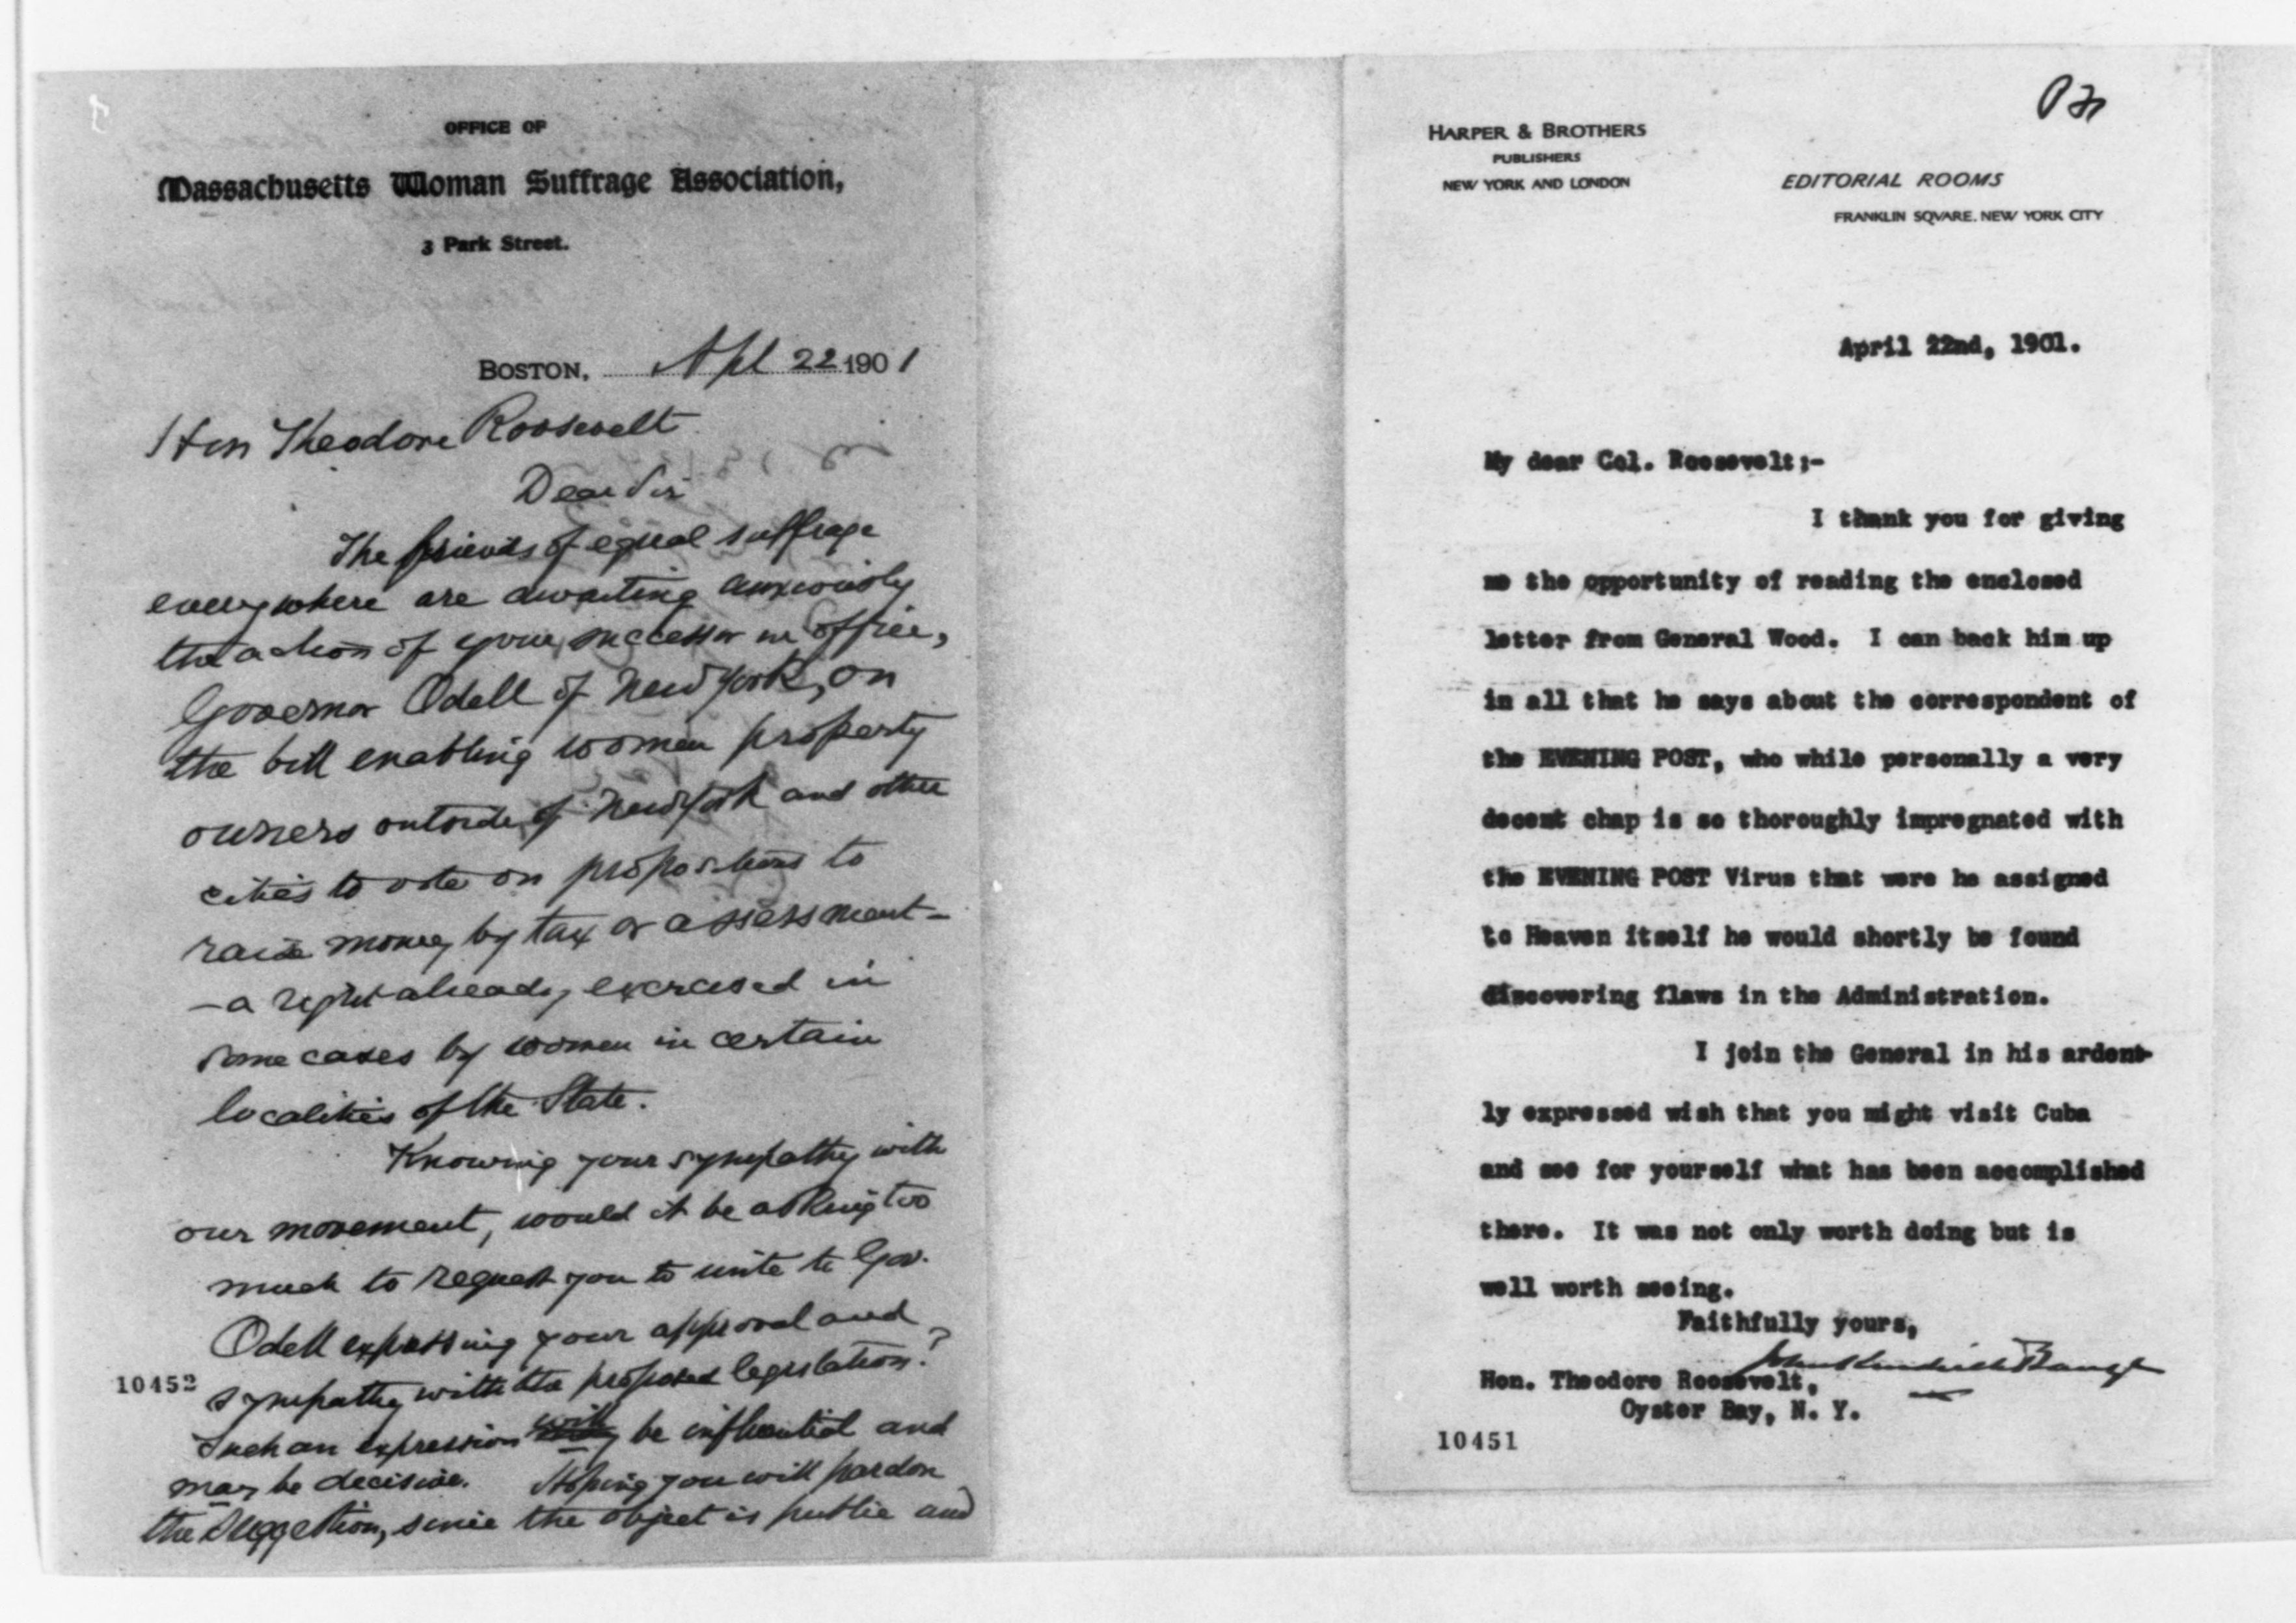 OFFICE OF
Massachusetts Woman Suffrage Association,
3 Park Street.
BOSTON, Apl 22 1901
Hon Theodore Roosevelt
Dear Sir
The friends of equal suffrage
everywhere are awaiting anxiously
the action of your successor in office,
Governor Odell of New York, on
the bill enabling women property
owners outside of New York and other
cities to vote on propositions to
raise money by tax or assessment—
—a right already exercised in
some cases by women in certain
localities of the State.
Knowing your sympathy with
our movement, would it be asking too
much to request you to write to Gov.
Odell expressing your approval and
sympathy with the proposed legislation?
Such an expression will be influential and
may be decisive. Hoping you will pardon
the suggestion, since the object is public and
10452
HARPER & BROTHERS
PUBLISHERS
NEW YORK AND LONDON
EDITORIAL ROOMS
FRANKLIN SQVARE, NEW YORK CITY
April 22nd, 1901.
My dear Col. Roosevelt;-
I thank you for giving
me the opportunity of reading the enclosed
letter from General Wood. I can back him up
in all that he says about the correspondent of
the EVENING POST, who while personally a very
decent chap is so thoroughly impregnated with
the EVENING POST Virus that were he assigned
to Heaven itself he would shortly be found
discovering flaws in the Administration.
I join the General in his ardent-
ly expressed wish that you might visit Cuba
and see for yourself what has been accomplished
there. It was not only worth doing but is
well worth seeing.
Faithfully yours,
John Kendrick Bangs
Hon. Theodore Roosevelt,
Oyster Bay, N. Y.
10451